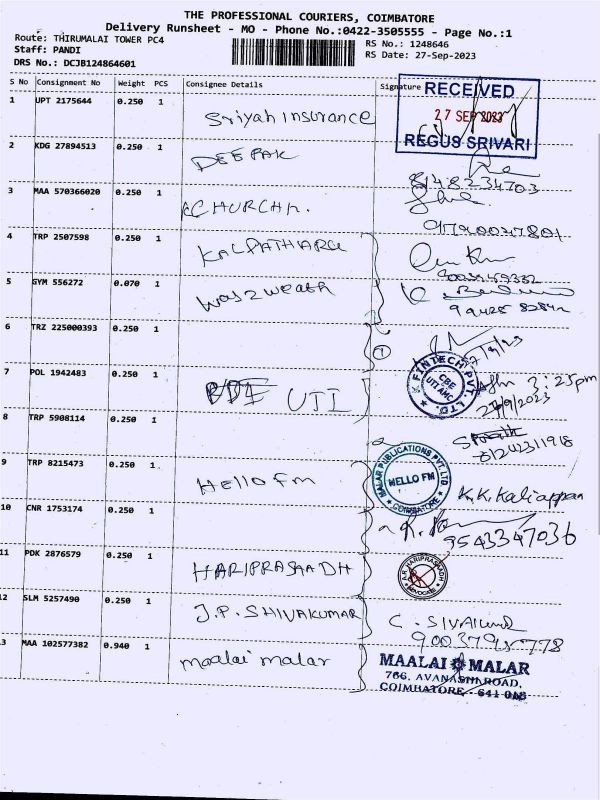 THE PROFESSIONAL COURIERS, COIMBATORE
Delivery Runsheet - MO - Phone No.:0422-3505555 - Page No.:1
Route: THIRUMALAI TOWER PC4
RS No.: 1248646
Staff: PANDI
RS Date: 27-Sep-2023
DRS No.: DCJB124864601
S No Consignment No Weight PCS Consignee Details Signature
RECEIVED
27 SEP 2023
REGUS SRIVARI
1 UPT 2175644 0.250 1 Sriyah insurance
2 KDG 27894513 0.250 1 DEEPAK
8148234703
3 MAA 570366020 0.250 1 CHURCHN.
4 TRP 2507598 0.250 1 KALPATHARU
5 GYM 556272 0.070 1
6 TRZ 225000393 0.250 1
7 POL 1942483 0.250 1 UTI
FINTECH PVT. LTD.
CBE
UTI AMC
3:25pm
27/9/2023
8 TRP 5908114 0.250 1
9 TRP 8215473 0.250 1 Hello fm
MALAR PUBLICATIONS PVT. LTD
HELLO FM
COIMBATORE
K.K.Kaliappan
10 CNR 1753174 0.250 1
9543347036
11 PDK 2876579 0.250 1 HARIPRASAADH
ADVOCATE
12 SLM 5257490 0.250 1 J.P. SHIVAKUMAR
13 MAA 102577382 0.940 1 maalai malar
MAALAI MALAR
766, AVANASHI ROAD,
COIMBATORE - 641 018